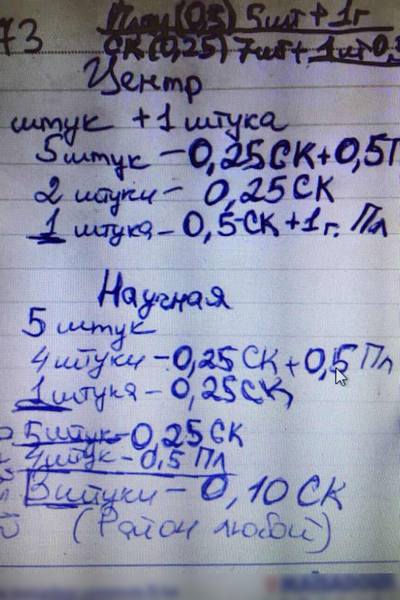 73
План (0,5) 5шт + 1г
СК (0,25) 7шт + 1шт 0,5
Центр
штук + 1 штука
5 штук - 0,25 СК + 0,5 П
2 штуки - 0,25 СК
1 штука - 0,5 СК + 1 г. Пл
Научная
5 штук
4 штуки - 0,25 СК + 0,5 Пл
1 штука - 0,25 СК
5 штук - 0,25 СК
4 штук - 0,5 Пл
3 штуки - 0,10 СК
(Район любой)